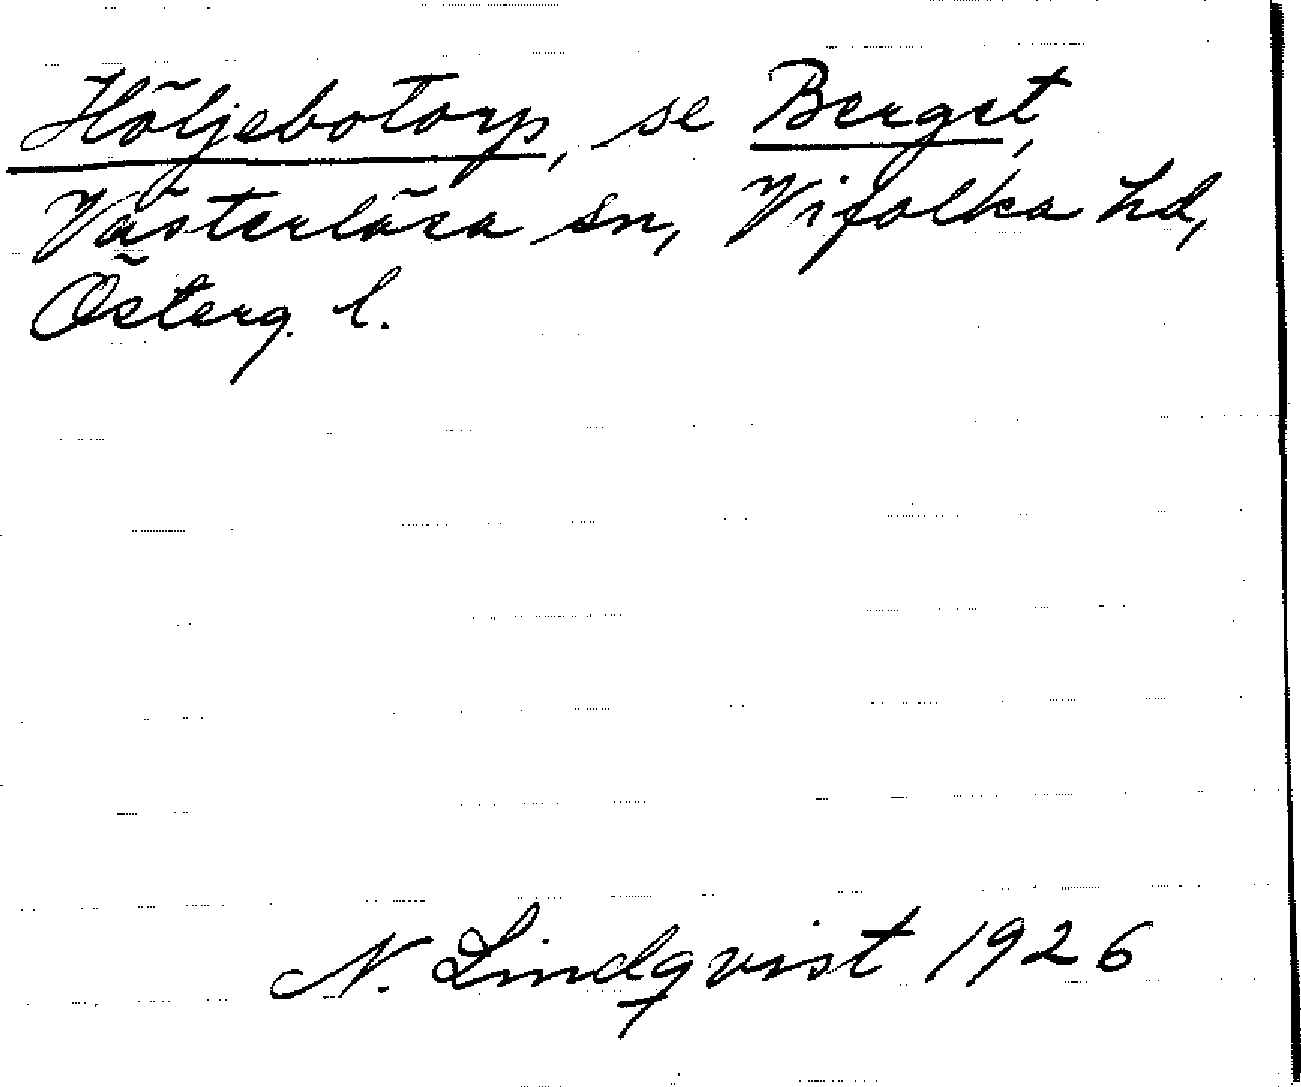 Höljebotorp, se Berget,
Västerlösa sn, Vifolka hd,
Österg. l.
N. Lindqvist 1926